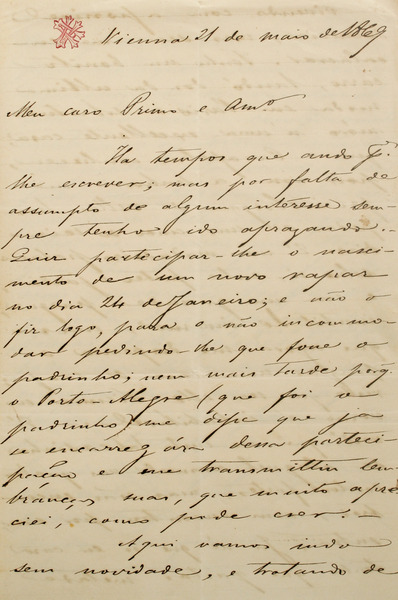 Vienna 21 de maio de 1869
Meu caro Primo e Amº
Ha tempos que ando pª
lhe escrever; mas por falta de
assumpto de algum interesse sem-
pre tenho ido aprazando.-
Quiz participar-lhe o nasci-
mento de um novo rapaz
no dia 24 de Janeiro; e não o
fiz logo, para o não incommo-
dar pedindo-lhe que fosse o
padrinho; nem mais tarde pq.
o Porto-Alegre (que foi o
padrinho) me disse que já
se encarregára dessa partici-
pação e me transmittiu lem-
branças suas, que muito apre-
ciei, como pode crer.-
Aqui vamos indo
sem novidade, e tratando de